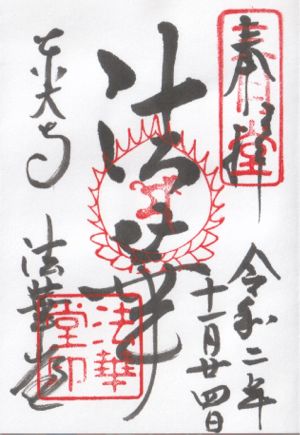 奉拝
令和二年
十一月廿四日
法華
東大寺
法華堂
法華
堂印